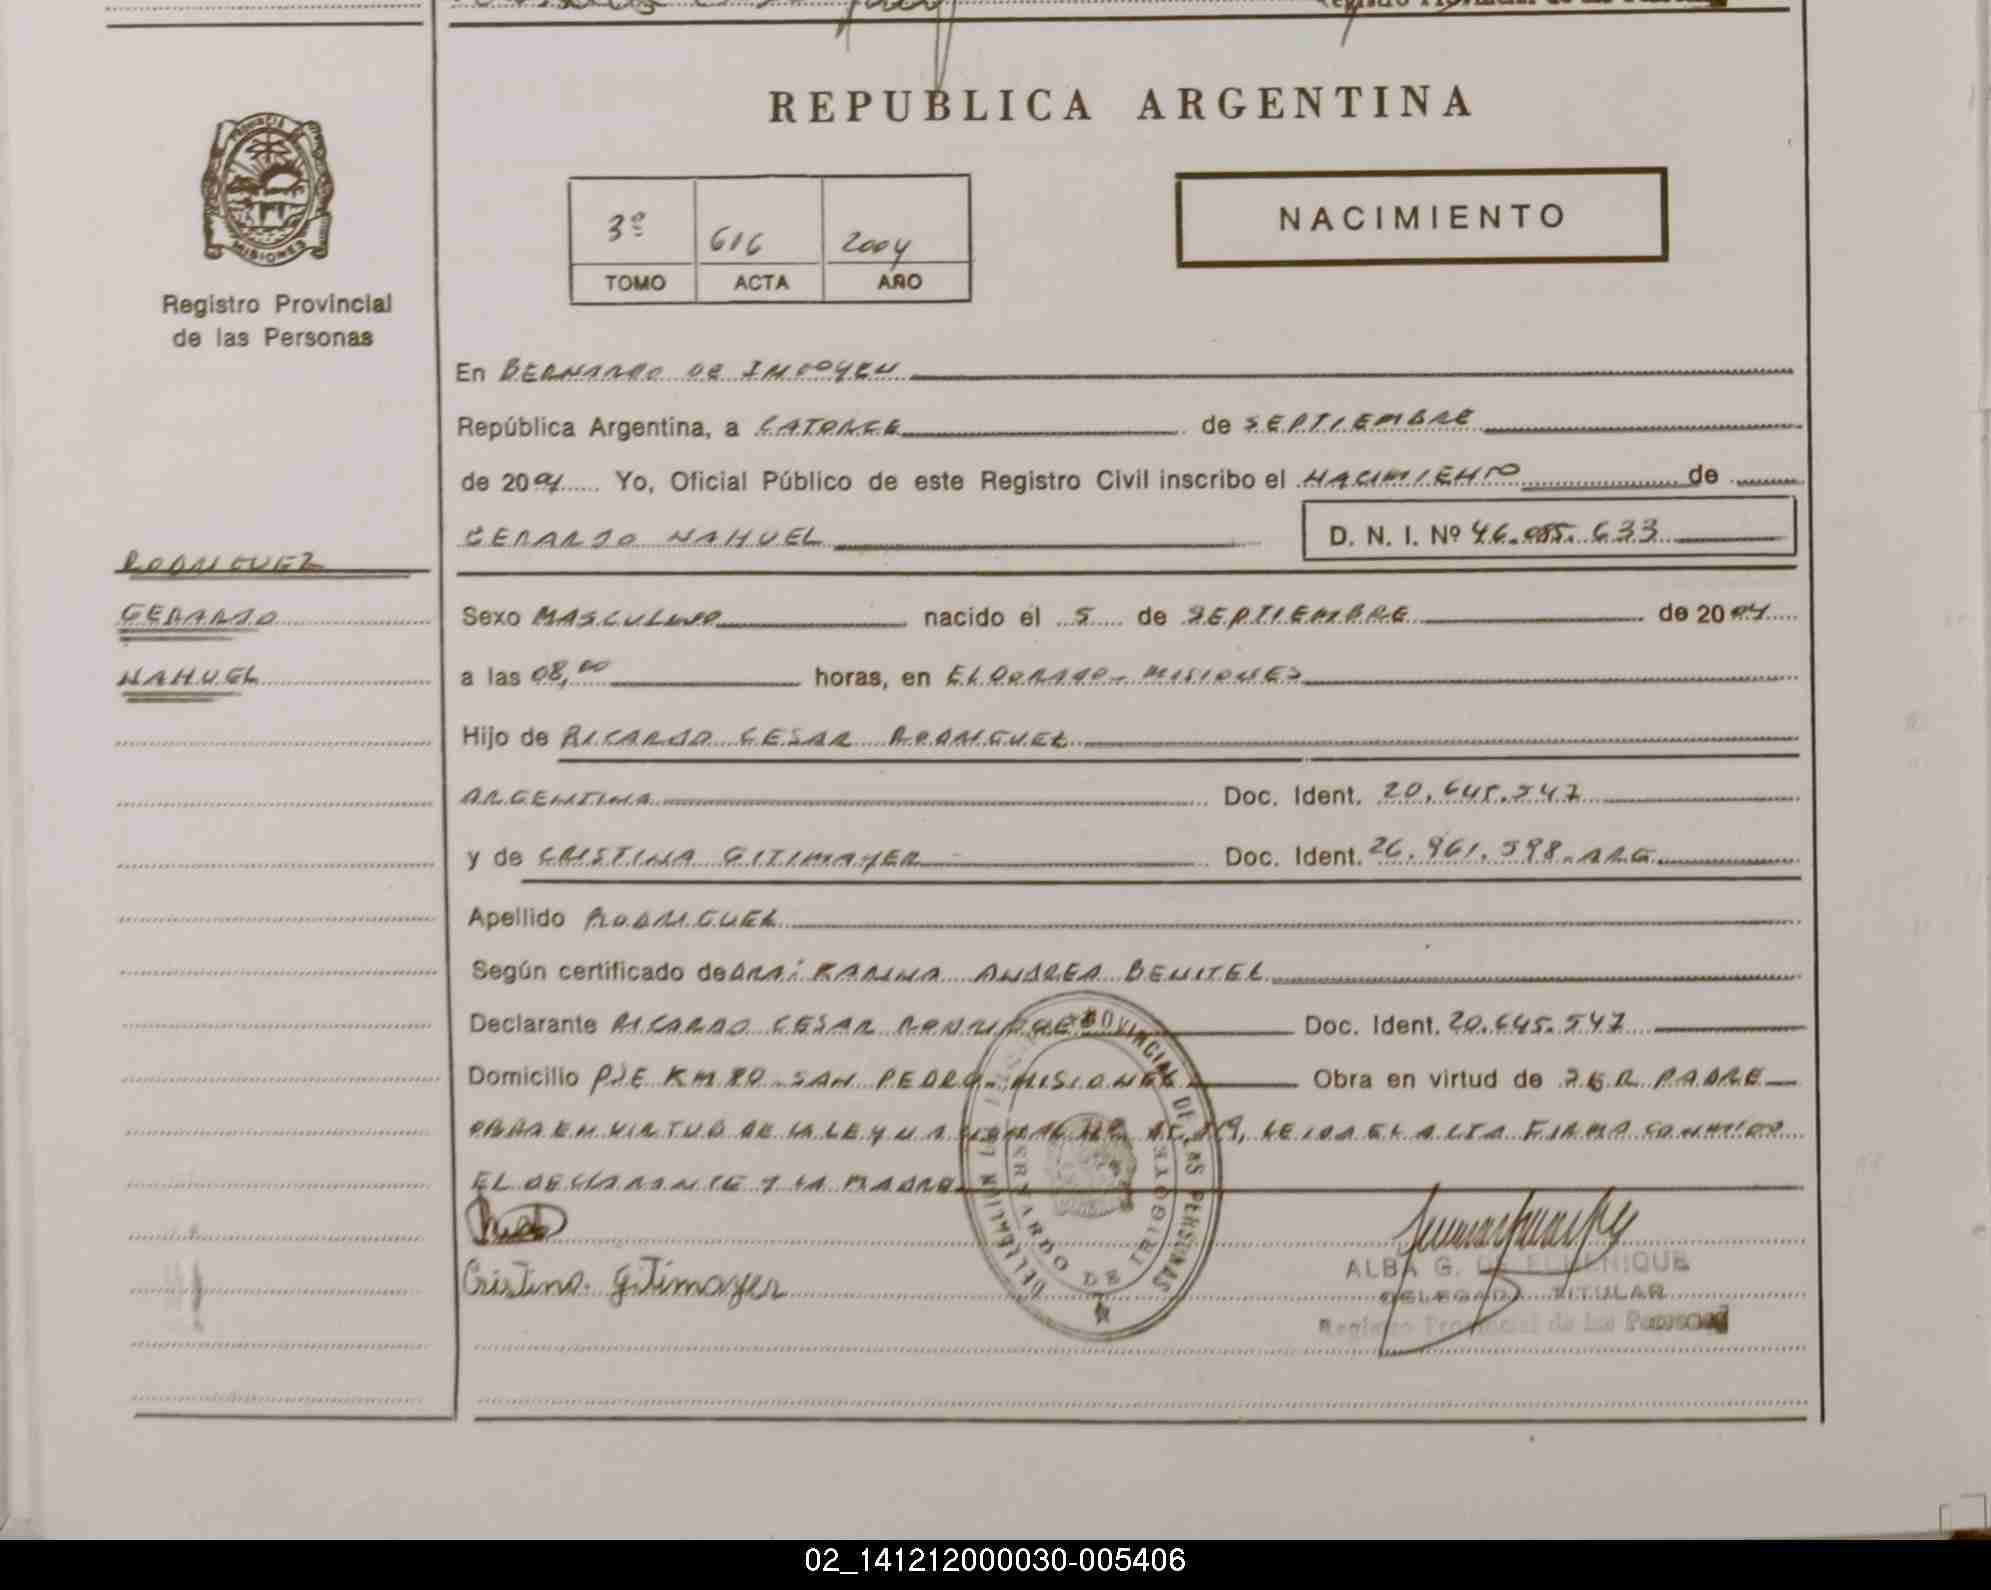 REPUBLICA ARGENTINA
PROVINCIA DE
MISIONES
Registro Provincial
de las Personas
3º 616 2004
TOMO ACTA AÑO
NACIMIENTO
En BERNARDO DE IRIGOYEN
República Argentina, a CATORCE de SEPTIEMBRE
de 2004 Yo, Oficial Público de este Registro Civil inscribo el NACIMIENTO de
GERARDO NAHUEL D. N. I. Nº 46.085.633
RODRIGUEZ
GERARDO
NAHUEL
Sexo MASCULINO nacido el 5 de SEPTIEMBRE de 2004
a las 08,00 horas, en ELDORADO - MISIONES
Hijo de RICARDO CESAR RODRIGUEZ
ARGENTINA Doc. Ident. 20.645.547
y de CRISTINA GITIMAYER Doc. Ident. 26.961.598 - ARG
Apellido RODRIGUEZ
Según certificado de DRA: KARINA ANDREA BENITEZ
Declarante RICARDO CESAR RODRIGUEZ Doc. Ident. 20.645.547
Domicilio PJE KM 80 - SAN PEDRO - MISIONES Obra en virtud de SER PADRE
OBRA EN VIRTUD DE LA LEY LEIDA EL ACTA FIRMA CONMIGO
EL DECLARANTE Y LA MADRE
Cristina Gitimayer
PROVINCIAL DE LAS PERSONAS
BERNARDO DE IRIGOYEN
ALBA G. DE
DELEGADA TITULAR
Registro Provincial de las Personas
02_141212000030-005406